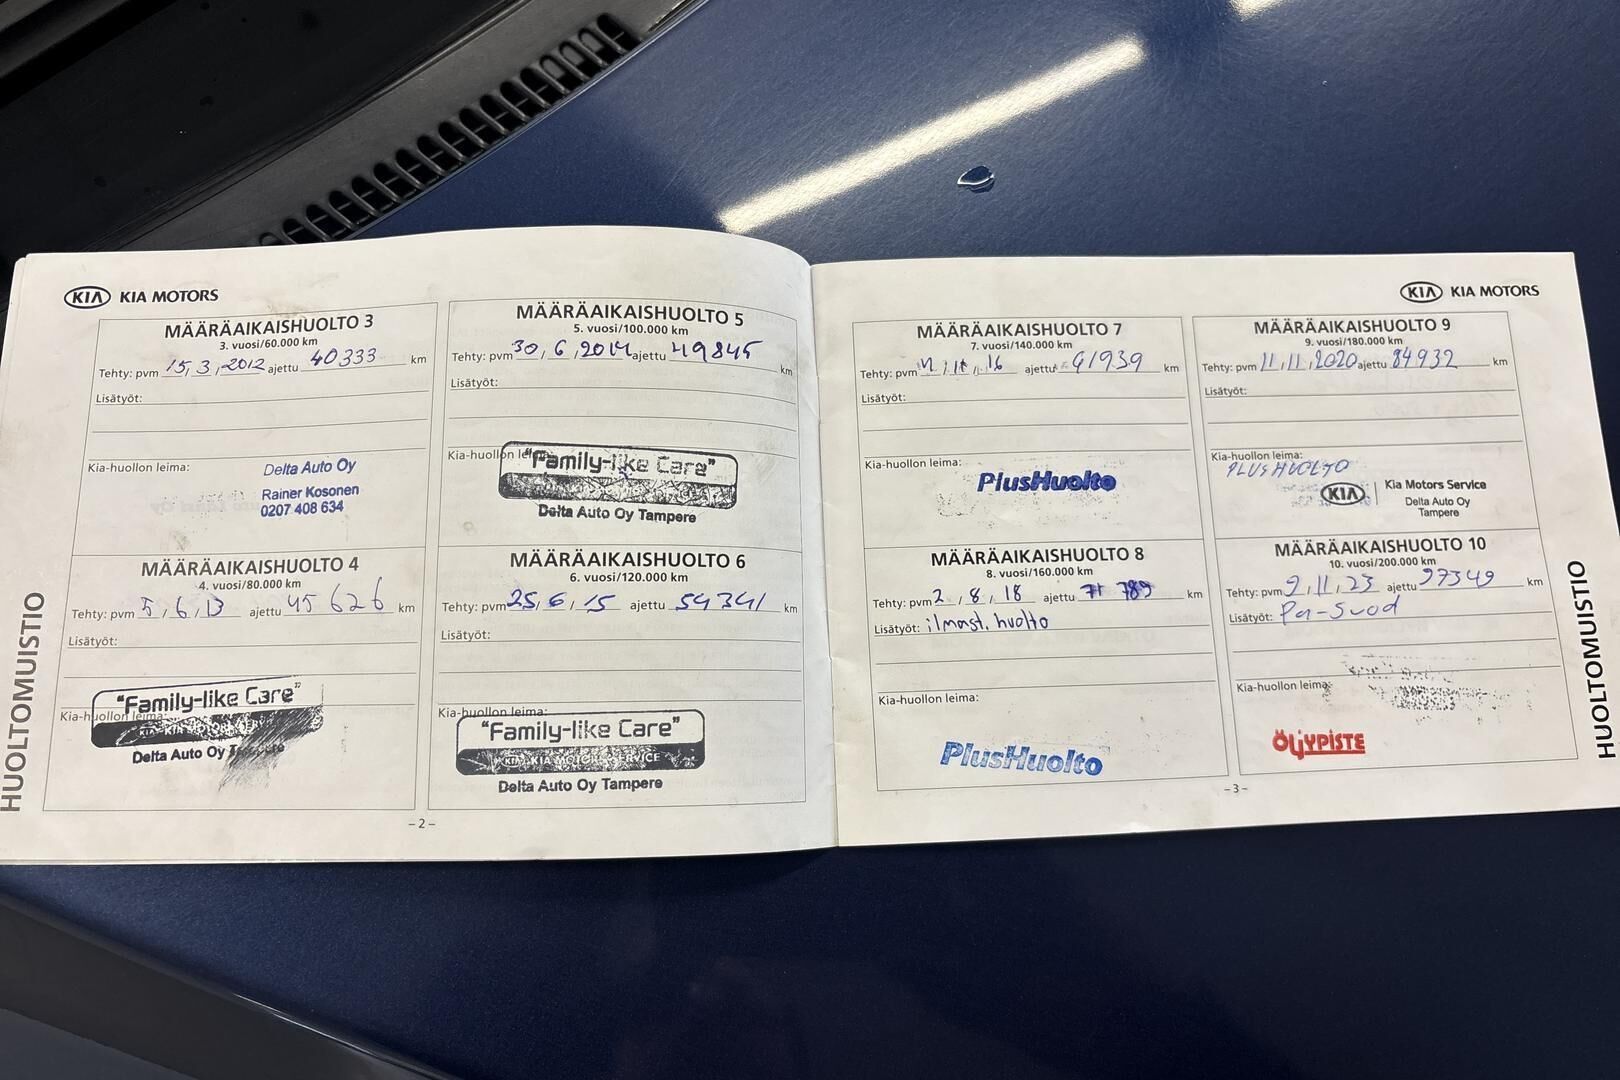 KIA KIA MOTORS
MÄÄRÄAIKAISHUOLTO 3
3. vuosi/60.000 km
Tehty: pvm 15, 3, 2012 ajettu 40333 km
Lisätyöt:
Kia-huollon leima:
Delta Auto Oy
Rainer Kosonen
0207 408 634
MÄÄRÄAIKAISHUOLTO 4
4. vuosi/80.000 km
Tehty: pvm 5, 6, 13 ajettu 45 626 km
Lisätyöt:
"Family-like Care"
Kia-huollon leima:
KIA KIA MOTORS
Delta Auto Oy
MÄÄRÄAIKAISHUOLTO 5
5. vuosi/100.000 km
Tehty: pvm 30, 6, 2014 ajettu 49845 km
Lisätyöt:
Kia-huollon leima:
"Family-like Care"
Delta Auto Oy Tampere
MÄÄRÄAIKAISHUOLTO 6
6. vuosi/120.000 km
Tehty: pvm 25, 6, 15 ajettu 54341 km
Lisätyöt:
Kia-huollon leima:
"Family-like Care"
KIA KIA MOTORS SERVICE
Delta Auto Oy Tampere
HUOLTOMUISTIO
-2-
KIA KIA MOTORS
MÄÄRÄAIKAISHUOLTO 7
7. vuosi/140.000 km
Tehty: pvm 16 ajettu 61939 km
Lisätyöt:
Kia-huollon leima:
PlusHuolto
MÄÄRÄAIKAISHUOLTO 8
8. vuosi/160.000 km
Tehty: pvm 2, 8, 18 ajettu 71 789 km
Lisätyöt: ilmast. huolto
Kia-huollon leima:
PlusHuolto
MÄÄRÄAIKAISHUOLTO 9
9. vuosi/180.000 km
Tehty: pvm 11, 11, 2020 ajettu 84932 km
Lisätyöt:
Kia-huollon leima:
PLUSHUOLTO
KIA Kia Motors Service
Delta Auto Oy
Tampere
MÄÄRÄAIKAISHUOLTO 10
10. vuosi/200.000 km
Tehty: pvm 9, 11, 23 ajettu 97349 km
Lisätyöt: Pa-suod
Kia-huollon leima:
ÖLJYPISTE
HUOLTOMUISTIO
-3-